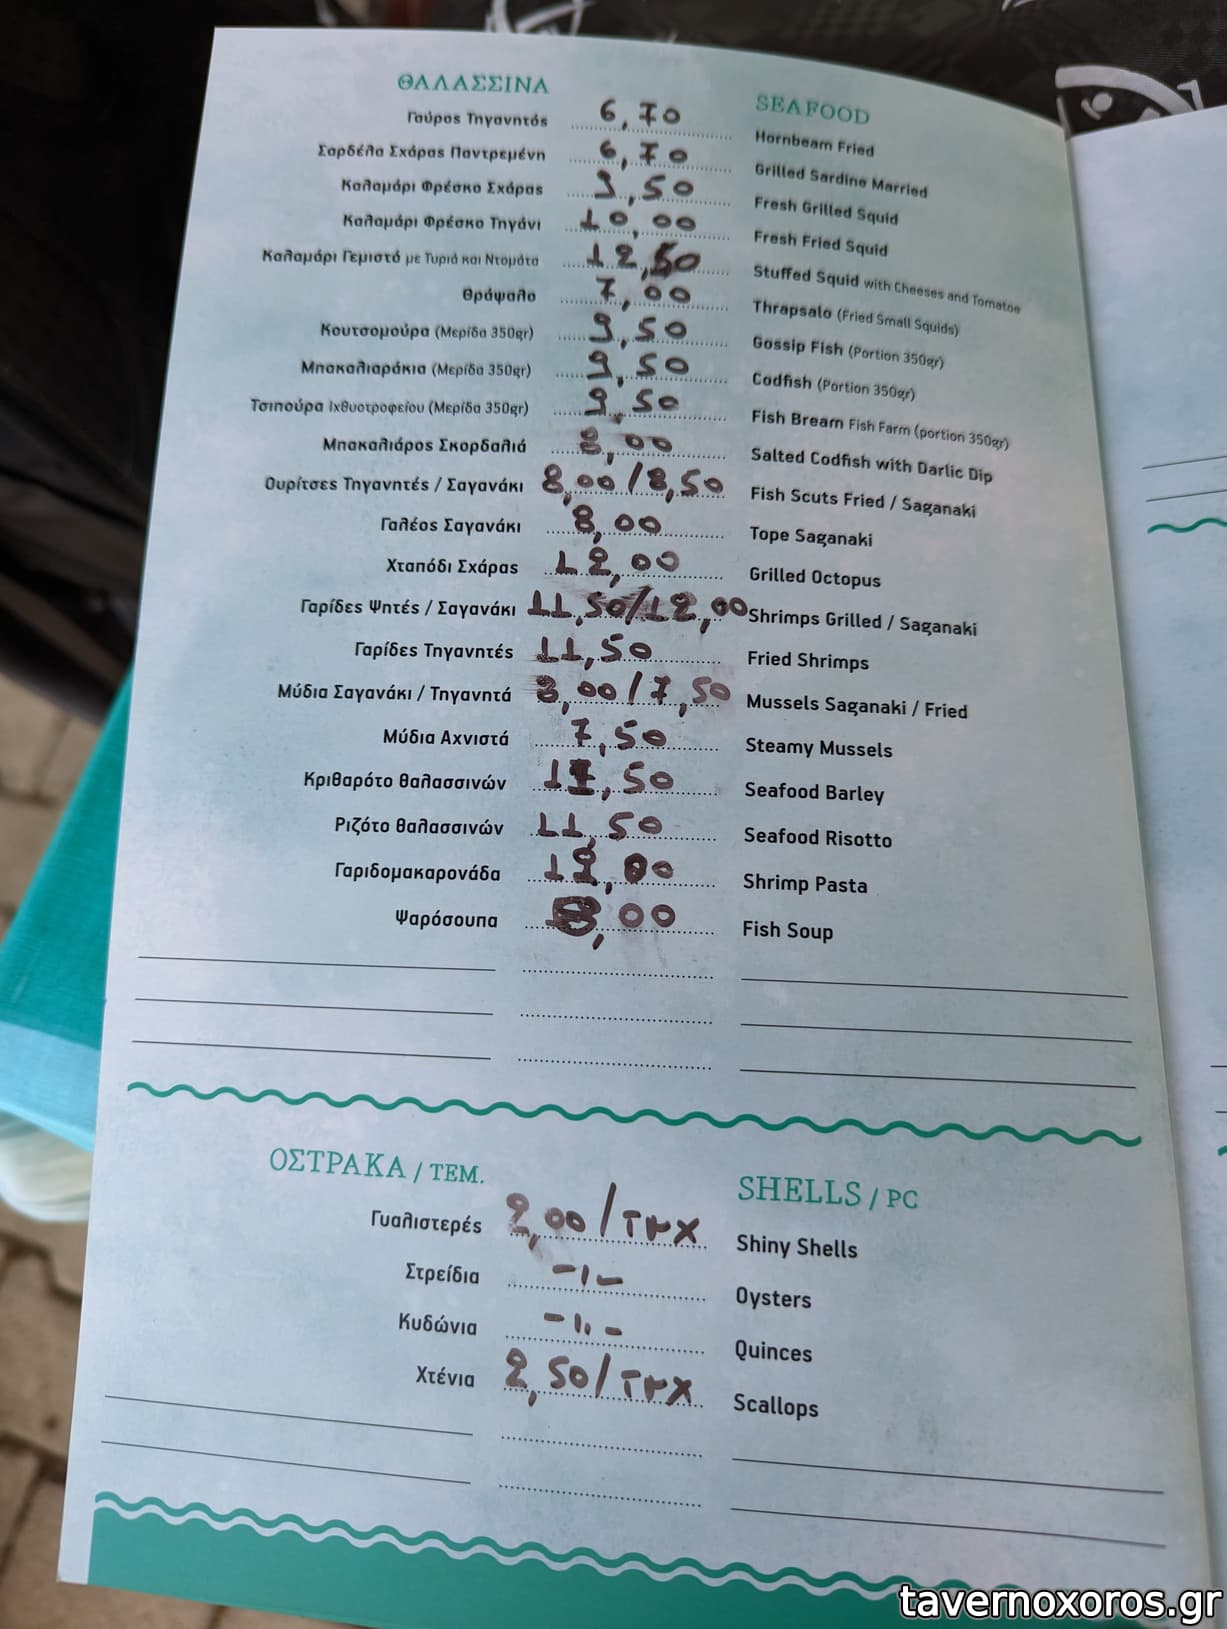 ΘΑΛΑΣΣΙΝΑ SEAFOOD
Γαύρος Τηγανητός 6,70 Hornbeam Fried
Σαρδέλα Σχάρας Παντρεμένη 6,70 Grilled Sardine Married
Καλαμάρι Φρέσκο Σχάρας 9,50 Fresh Grilled Squid
Καλαμάρι Φρέσκο Τηγάνι 10,00 Fresh Fried Squid
Καλαμάρι Γεμιστό με Τυριά και Ντομάτα 12,50 Stuffed Squid with Cheeses and Tomatoe
Θράψαλο 7,00 Thrapsalo (Fried Small Squids)
Κουτσομούρα (Μερίδα 350gr) 9,50 Gossip Fish (Portion 350gr)
Μπακαλιαράκια (Μερίδα 350gr) 9,50 Codfish (Portion 350gr)
Τσιπούρα Ιχθυοτροφείου (Μερίδα 350gr) 9,50 Fish Bream Fish Farm (portion 350gr)
Μπακαλιάρος Σκορδαλιά 8,00 Salted Codfish with Darlic Dip
Ουρίτσες Τηγανητές / Σαγανάκι 8,00/8,50 Fish Scuts Fried / Saganaki
Γαλέος Σαγανάκι 8,00 Tope Saganaki
Χταπόδι Σχάρας 12,00 Grilled Octopus
Γαρίδες Ψητές / Σαγανάκι 11,50/12,00 Shrimps Grilled / Saganaki
Γαρίδες Τηγανητές 11,50 Fried Shrimps
Μύδια Σαγανάκι / Τηγανητά 8,00/7,50 Mussels Saganaki / Fried
Μύδια Αχνιστά 7,50 Steamy Mussels
Κριθαρότο θαλασσινών 11,50 Seafood Barley
Ριζότο θαλασσινών 11,50 Seafood Risotto
Γαριδομακαρονάδα 12,00 Shrimp Pasta
Ψαρόσουπα 8,00 Fish Soup
ΟΣΤΡΑΚΑ / ΤΕΜ. SHELLS / PC
Γυαλιστερές 2,00/τεχ Shiny Shells
Στρείδια -,- Oysters
Κυδώνια -,- Quinces
Χτένια 2,50/τεχ Scallops
tavernoxoros.gr